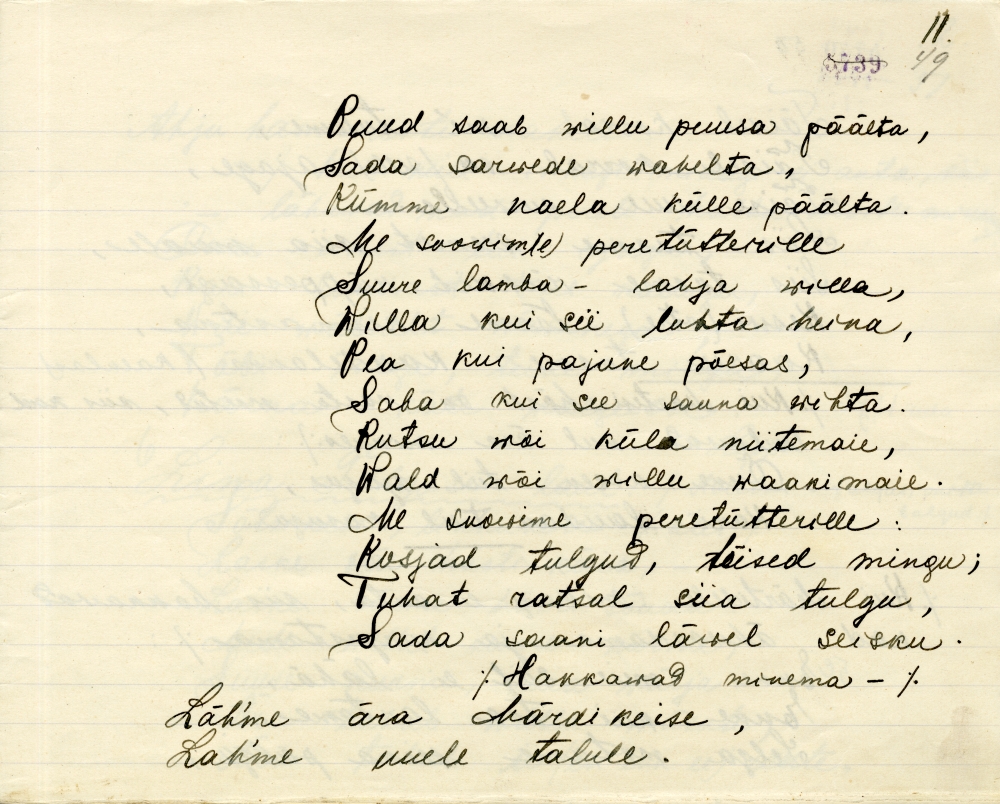 11.
5739
49
Puud saab willu puusa päälta,
Sada sarwede wahelta,
Kümme naela külle päälta.
Me soowim(e) peretütterille
Suure lamba - lahja willa,
Willa kui sii luhta heina,
Pea kui pajune põesas,
Saba kui see sauna wihta.
Rutsu wõi küla niitemaie,
Wald wõi willu waanimaie.
Me soowime peretütterille:
Kosjad tulgud, tõised mingu;
Tuhat ratsal siia tulgu,
Sada saani läwel seisku.
/ Hakkawad minema - /.
Lähme ära Märdikeise,
Lahme uuele talule.